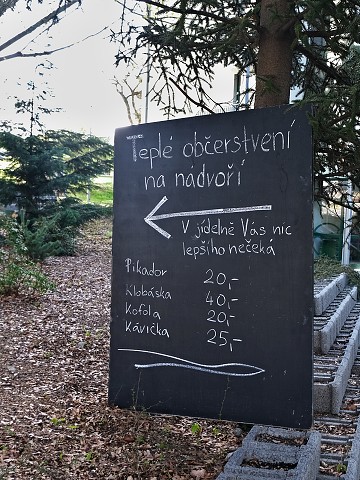 Teplé občerstvení
na nádvoří
V jídelně Vás nic
lepšího nečeká
Pikador 20,-
Klobáska 40,-
Kofola 20,-
Kávička 25,-